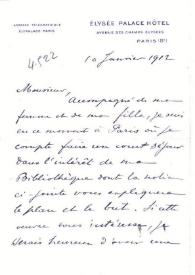 ADRESSE TÉLÉGRAPHIQUE
ELYPALACE PARIS
ÉLYSÉE PALACE HÔTEL
AVENUE DES CHAMPS ELYSÉES
PARIS (8e)
4522
10 Janvier 1912
Monsieur,
Accompagné de ma
femme et de ma fille, je suis
en ce moment à Paris où je
compte faire un court séjour
dans l'intérêt de ma
Bibliothèque dont la notice
ci-jointe vous expliquera
le plan et le but. Si cette
œuvre vous intéresse, je
serais heureux d'avoir une